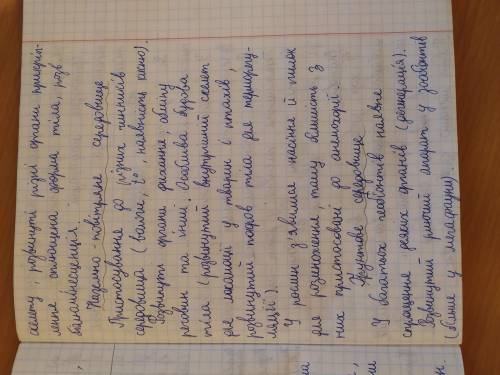 скелету, розвинуті різні органи прикріп-
лення сплощена форма тіла, розв
біолюмінесценція.
Наземно-повітряне середовище
Пристосування до різних чинників
середовища (вологи, t°, наявність кисню).
Розвинуті органи дихання, обміну
речовин та інші. Особлива будова
тіла (розвинутий внутрішній скелет
для локомоції у тварин і птахів,
розвинутий покров тіла для терморегу-
ляції).
У рослин з'явилися насіння й пилок
для розмноження тому більшість з
них пристосовані до анемохорії.
Ґрунтове середовище
У багатьох геобіонтів наявне
спрощення деяких органів (дегенерація).
Розвинутий риючий апарат у геобіонтів
(більше у мегафауни).